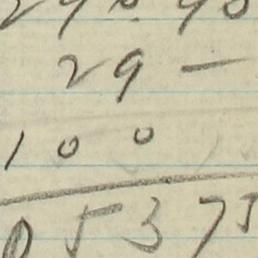 29 —
1 0 0
0 5 3 7 5